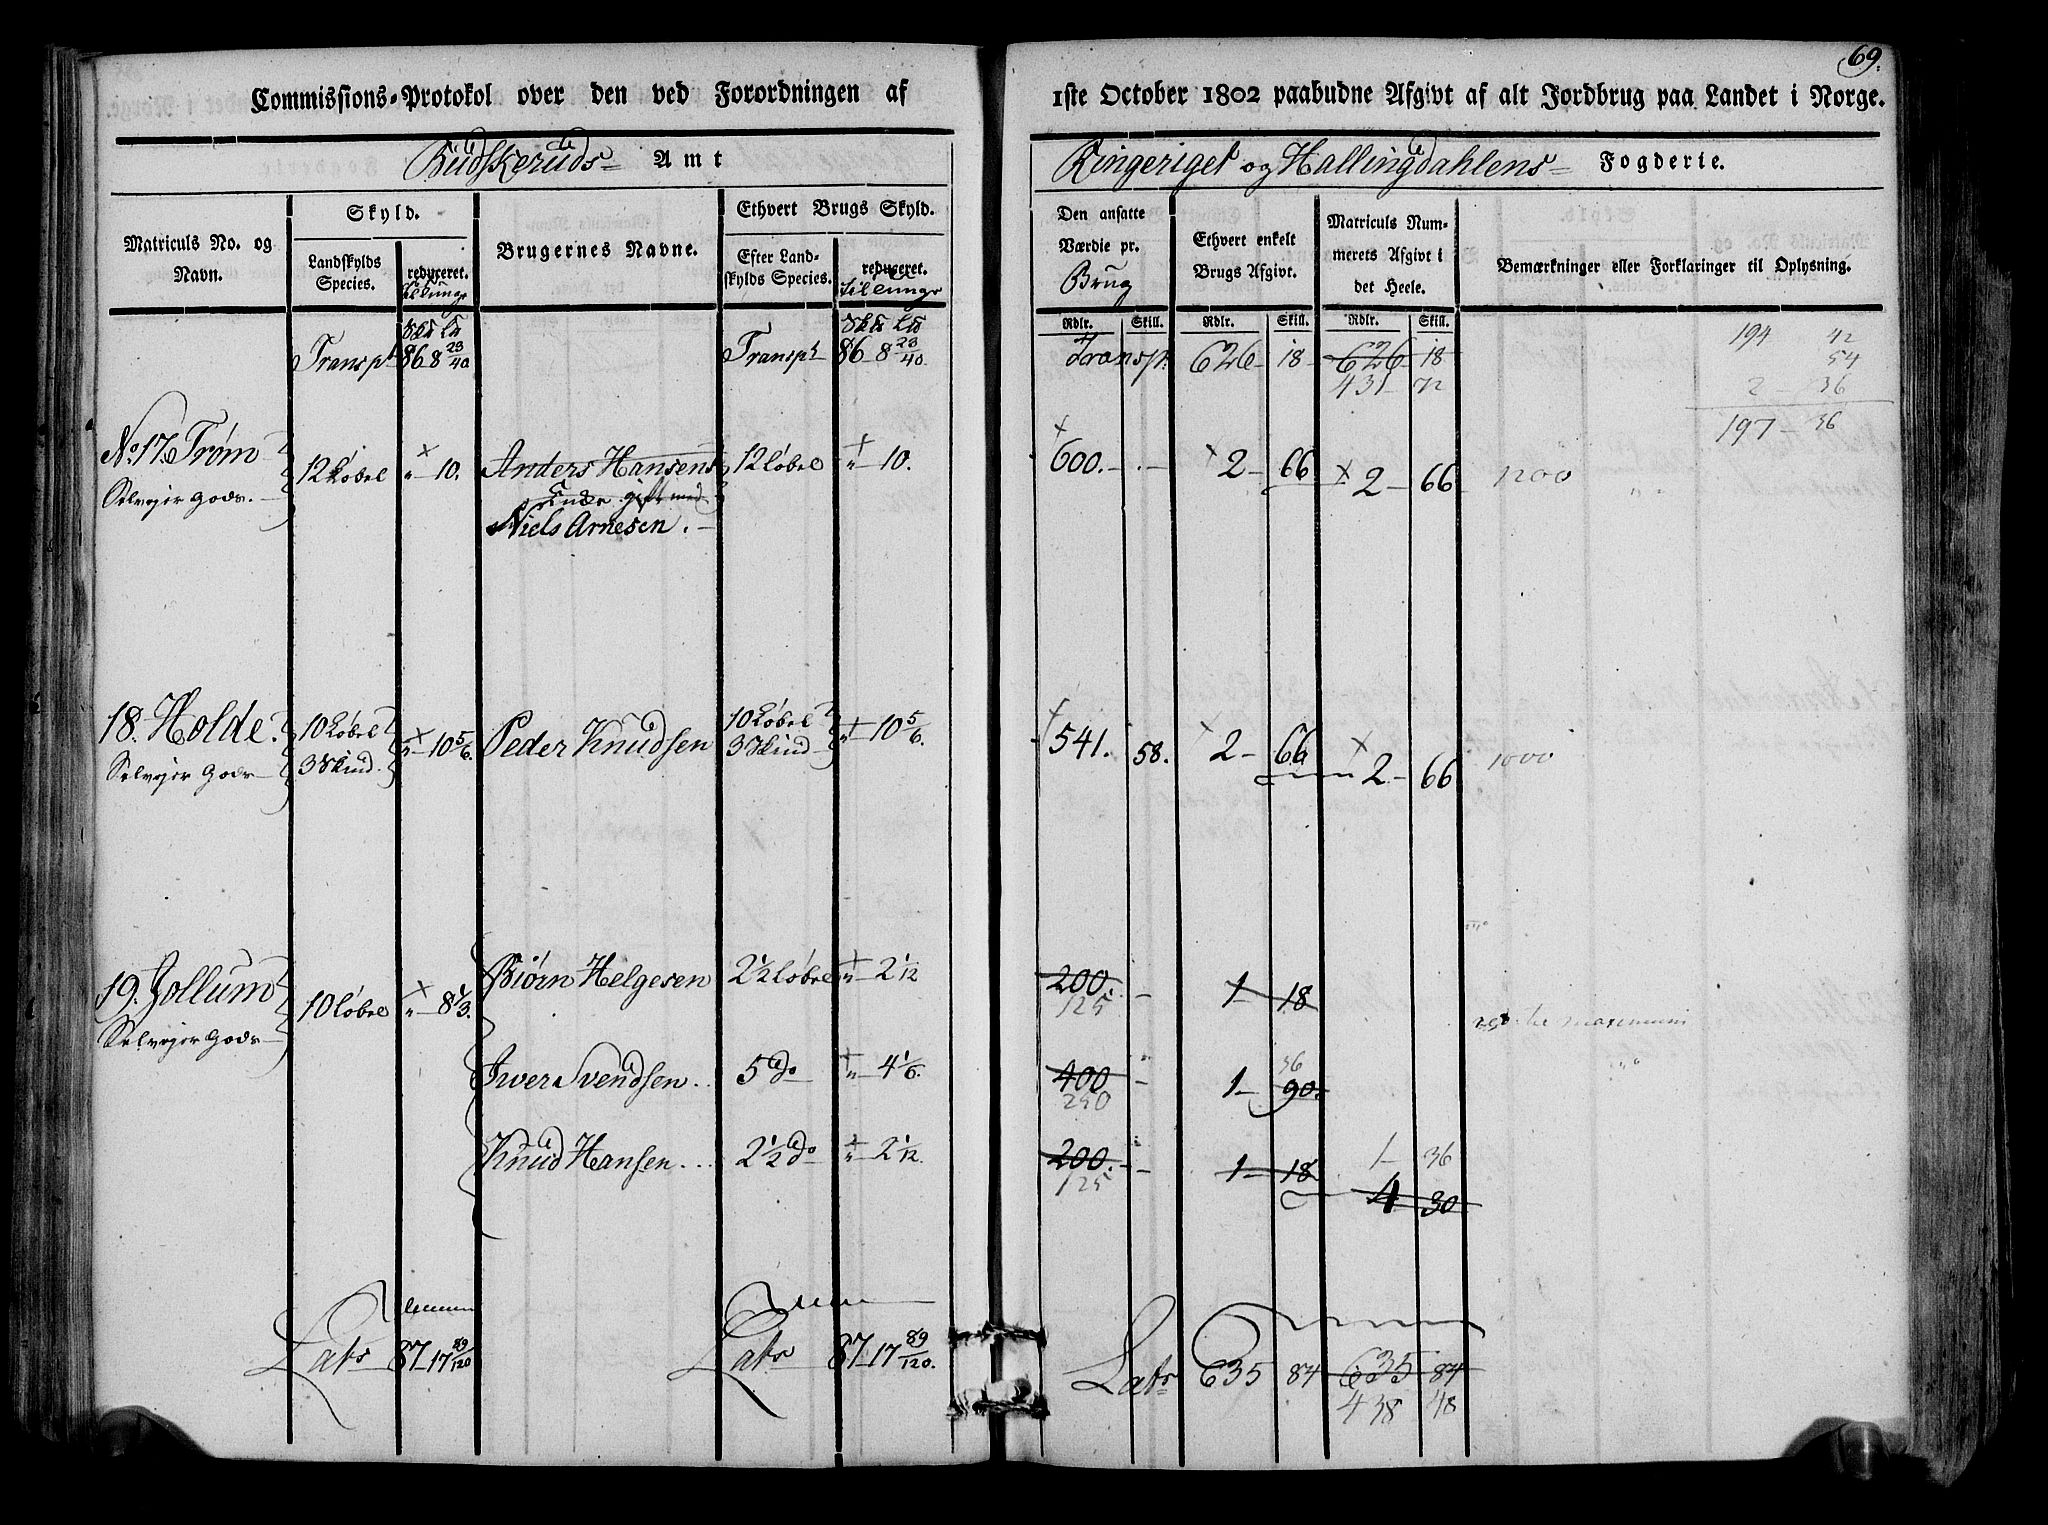 69.
Commissions-Protokol over den ved Forordningen af
1ste October 1802 paabudne Afgivt af alt Jordbrug paa Landet i Norge.
Budskeruds- Amt
Ringeriget og Hallingdahlens- Fogderie.
Matriculs No. og Navn.
Skyld.
Landskylds Species.
reduceret.
Brugernes Navne.
Ethvert Brugs Skyld.
Efter Landskylds Species.
reduceret.
Den ansatte Værdie pr. Brug
Ethvert enkelt Brugs Afgivt.
Matriculs Nummerets Afgivt i det Heele.
Bemærkninger eller Forklaringer til Oplysning.
Rdlr. Skill. Rdlr. Skill. Rdlr. Skill.
Transpt 86 8 23/40 Transpt 86 8 23/40. Transp. 626 18 626 18
431 72
194 42
54
2 36
197 36
No. 17. Trøm 12 Løbel " 10. Anders Hansens 12 Løbel " 10. 600. 2 66 2 66 1200
Selvejer Gods. Enke gift med
Niels Arnesen.
18. Holde. 10 Løbel 3 Skind " 10 5/6. Peder Knudsen 10 Løbel 3 Skind " 10 5/6. 541. 58. 2 66 2 66 1000
Selvejer Gods
19. Jollum 10 Løbel " 8 1/3. Biørn Helgesen 2 1/2 Løbel " 2 1/12 200. 1 18
125
Selvejer Gods
maximum
Iver Svendsen. 5 do " 4 1/6. 400 1 90.
250 36
Knud Hansen. 2 1/2 do " 2 1/12. 200. 1 18 1 36
125 4 30
Lats 87 17 89/120 Lats 87 17 89/120. Lats 635 84 635 84
438 48